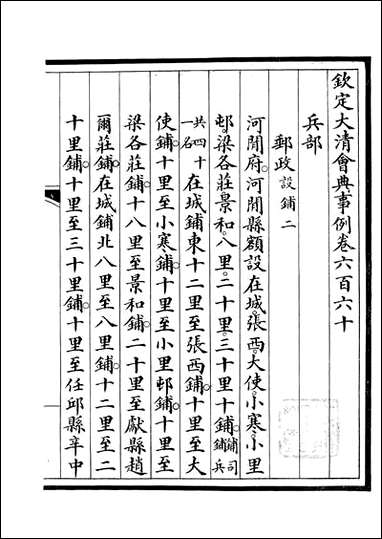 欽定大清會典事例卷六百六十
兵部
郵政設鋪二
河閒府。河閒縣額設在城。張西。大使。小寒。小里
邨。梁各莊。景和。八里。二十里。三十里十鋪。鋪司鋪兵
共四十一名在城鋪東十二里至張西鋪。十里至大
使鋪。十里至小寒鋪。十里至小里邨鋪。十里至
梁各莊鋪。十八里至景和鋪。二十里至獻縣趙
爾莊鋪。在城鋪北八里至八里鋪。十二里至二
十里鋪。十里至三十里鋪。十里至任邱縣辛中